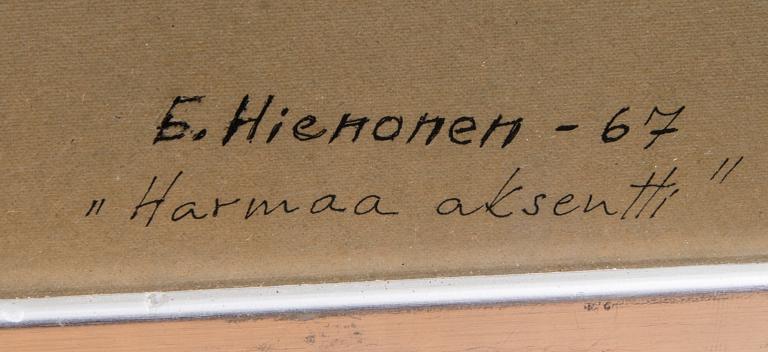 E. Hienonen - 67
„Harmaa aksentti"